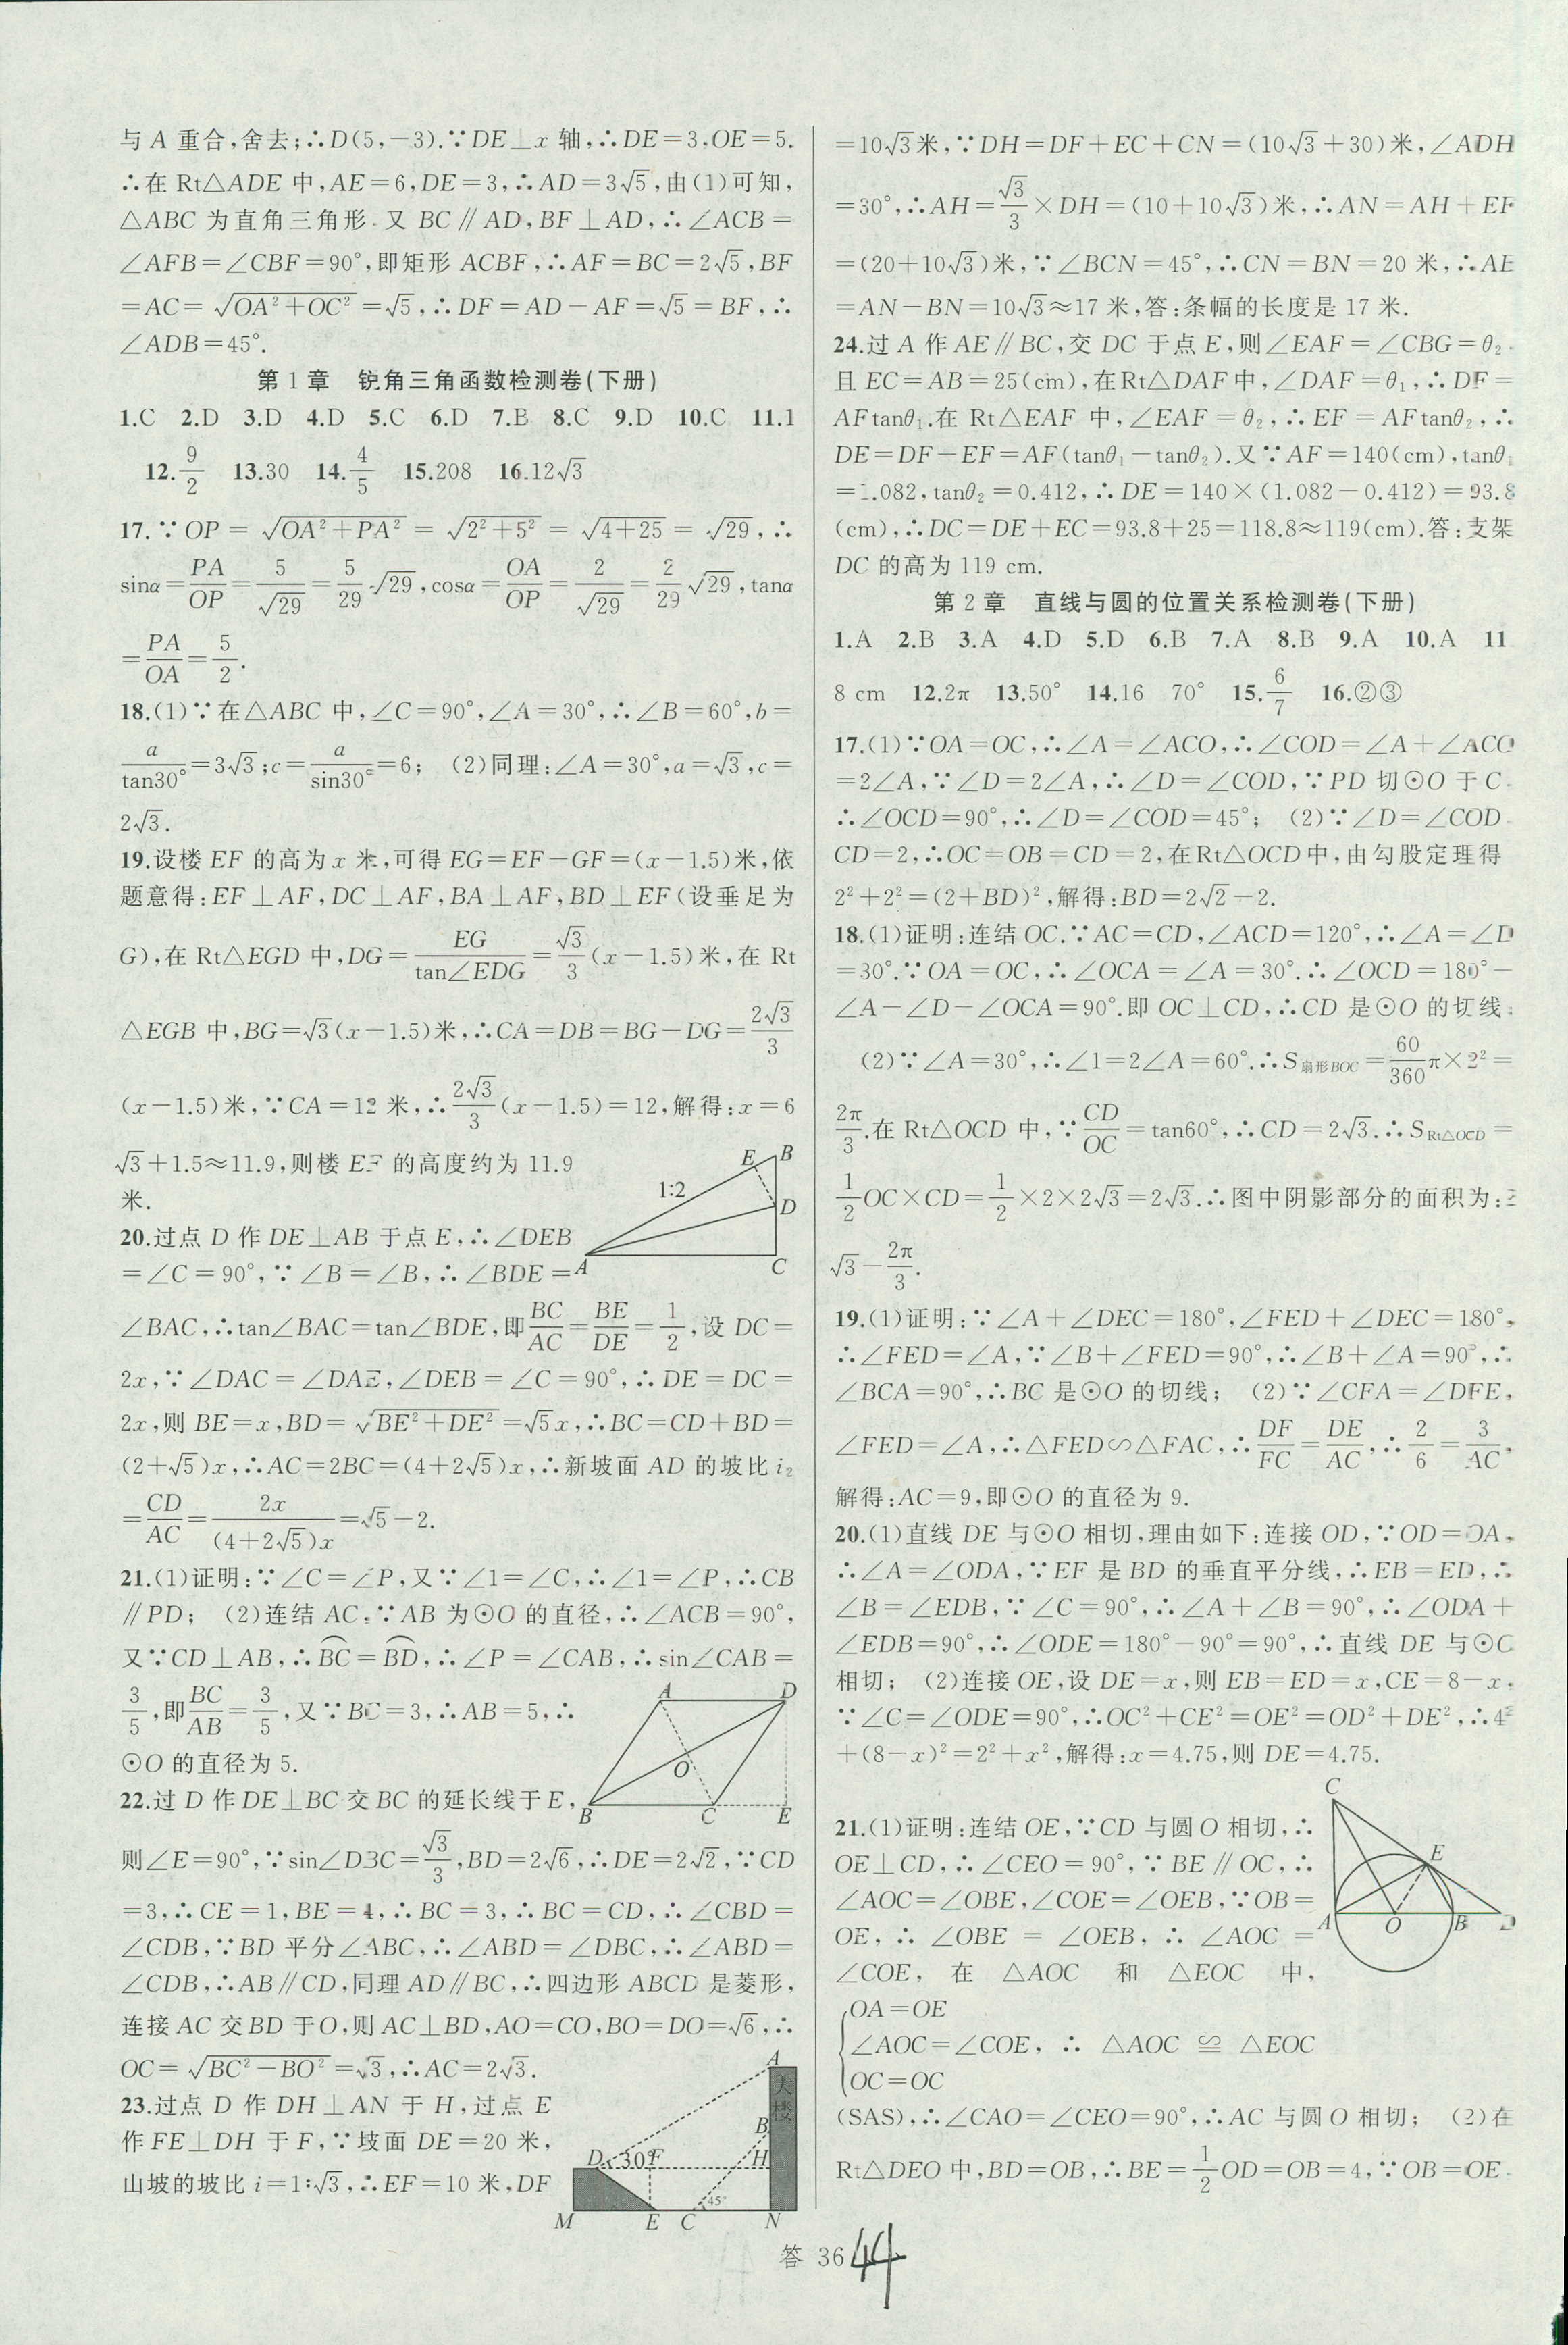 与 A 重合,舍去;∴D(5,-3).∵DE⊥x 轴,∴DE=3,OE=5.
∴在 Rt△ADE 中,AE=6,DE=3,∴AD=3√5,由(1)可知,
△ABC 为直角三角形.又 BC∥AD,BF⊥AD,∴∠ACB=
∠AFB=∠CBF=90°,即矩形 ACBF,∴AF=BC=2√5,BF
=AC=√(OA²+OC²)=√5,∴DF=AD-AF=√5=BF,∴
∠ADB=45°.
第 1 章 锐角三角函数检测卷(下册)
1.C 2.D 3.D 4.D 5.C 6.D 7.B 8.C 9.D 10.C 11.1
12.9/2 13.30 14.4/5 15.208 16.12√3
17.∵OP=√(OA²+PA²)=√(2²+5²)=√(4+25)=√29,∴
sinα=PA/OP=5/√29=5/29√29,cosα=OA/OP=2/√29=2/29√29,tanα
=PA/OA=5/2.
18.(1)∵在△ABC 中,∠C=90°,∠A=30°,∴∠B=60°,b=
a/tan30°=3√3;c=a/sin30°=6; (2)同理:∠A=30°,a=√3,c=
2√3.
19.设楼 EF 的高为 x 米,可得 EG=EF-GF=(x-1.5)米,依
题意得:EF⊥AF,DC⊥AF,BA⊥AF,BD⊥EF(设垂足为
G),在 Rt△EGD 中,DG=EG/tan∠EDG=√3/3(x-1.5)米,在 Rt
△EGB 中,BG=√3(x-1.5)米,∴CA=DB=BG-DG=2√3/3
(x-1.5)米,∵CA=12 米,∴2√3/3(x-1.5)=12,解得:x=6
√3+1.5≈11.9,则楼 EF 的高度约为 11.9
米.
E B
1:2
D
A C
20.过点 D 作 DE⊥AB 于点 E,∴∠DEB
=∠C=90°,∵∠B=∠B,∴∠BDE=
∠BAC,∴tan∠BAC=tan∠BDE,即BC/AC=BE/DE=1/2,设 DC=
2x,∵∠DAC=∠DAE,∠DEB=∠C=90°,∴DE=DC=
2x,则 BE=x,BD=√(BE²+DE²)=√5x,∴BC=CD+BD=
(2+√5)x,∴AC=2BC=(4+2√5)x,∴新坡面 AD 的坡比 i₂
=CD/AC=2x/(4+2√5)x=√5-2.
21.(1)证明:∵∠C=∠P,又∵∠1=∠C,∴∠1=∠P,∴CB
∥PD; (2)连结 AC,∵AB 为⊙O 的直径,∴∠ACB=90°,
又∵CD⊥AB,∴BC⌒=BD⌒,∴∠P=∠CAB,∴sin∠CAB=
3/5,即BC/AB=3/5,又∵BC=3,∴AB=5,∴
⊙O 的直径为 5.
A D
O
B C E
22.过 D 作 DE⊥BC 交 BC 的延长线于 E,
则∠E=90°,∵sin∠DBC=√3/3,BD=2√6,∴DE=2√2,∵CD
=3,∴CE=1,BE=4,∴BC=3,∴BC=CD,∴∠CBD=
∠CDB,∵BD 平分∠ABC,∴∠ABD=∠DBC,∴∠ABD=
∠CDB,∴AB∥CD,同理 AD∥BC,∴四边形 ABCD 是菱形,
连接 AC 交 BD 于O,则 AC⊥BD,AO=CO,BO=DO=√6,∴
OC=√(BC²-BO²)=√3,∴AC=2√3.
23.过点 D 作 DH⊥AN 于 H,过点 E
作 FE⊥DH 于 F,∵坡面 DE=20 米,
山坡的坡比 i=1:√3,∴EF=10 米,DF
A
大
楼
B
D 30° F H
45°
M E C N
=10√3米,∵DH=DF+EC+CN=(10√3+30)米,∠ADH
=30°,∴AH=√3/3×DH=(10+10√3)米,∴AN=AH+EF
=(20+10√3)米,∵∠BCN=45°,∴CN=BN=20 米,∴AE
=AN-BN=10√3≈17 米,答:条幅的长度是 17 米.
24.过 A 作 AE∥BC,交 DC 于点 E,则∠EAF=∠CBG=θ₂
且 EC=AB=25(cm),在Rt△DAF中,∠DAF=θ₁,∴DF=
AFtanθ₁.在 Rt△EAF 中,∠EAF=θ₂,∴EF=AFtanθ₂,∴
DE=DF-EF=AF(tanθ₁-tanθ₂).又∵AF=140(cm),tanθ₁
=1.082,tanθ₂=0.412,∴DE=140×(1.082-0.412)=93.8
(cm),∴DC=DE+EC=93.8+25=118.8≈119(cm).答:支架
DC 的高为 119 cm.
第 2 章 直线与圆的位置关系检测卷(下册)
1.A 2.B 3.A 4.D 5.D 6.B 7.A 8.B 9.A 10.A 11
8 cm 12.2π 13.50° 14.16 70° 15.6/7 16.②③
17.(1)∵OA=OC,∴∠A=∠ACO,∴∠COD=∠A+∠ACO
=2∠A,∵∠D=2∠A,∴∠D=∠COD,∵PD 切⊙O 于 C
∴∠OCD=90°,∴∠D=∠COD=45°; (2)∵∠D=∠COD
CD=2,∴OC=OB=CD=2,在Rt△OCD中,由勾股定理得
2²+2²=(2+BD)²,解得:BD=2√2-2.
18.(1)证明:连结 OC.∵AC=CD,∠ACD=120°,∴∠A=∠D
=30°.∵OA=OC,∴∠OCA=∠A=30°.∴∠OCD=180°-
∠A-∠D-∠OCA=90°.即 OC⊥CD,∴CD 是⊙O 的切线;
(2)∵∠A=30°,∴∠1=2∠A=60°.∴S扇形BOC=60/360π×2²=
2π/3.在 Rt△OCD 中,∵CD/OC=tan60°,∴CD=2√3.∴SRt△OCD=
1/2OC×CD=1/2×2×2√3=2√3.∴图中阴影部分的面积为:2
√3-2π/3.
19.(1)证明:∵∠A+∠DEC=180°,∠FED+∠DEC=180°,
∴∠FED=∠A,∵∠B+∠FED=90°,∴∠B+∠A=90°,∴
∠BCA=90°,∴BC 是⊙O 的切线; (2)∵∠CFA=∠DFE,
∠FED=∠A,∴△FED∽△FAC,∴DF/FC=DE/AC,∴2/6=3/AC,
解得:AC=9,即⊙O 的直径为 9.
20.(1)直线 DE 与⊙O 相切,理由如下:连接 OD,∵OD=OA,
∴∠A=∠ODA,∵EF 是 BD 的垂直平分线,∴EB=ED,∴
∠B=∠EDB,∵∠C=90°,∴∠A+∠B=90°,∴∠ODA+
∠EDB=90°,∴∠ODE=180°-90°=90°,∴直线 DE 与⊙O
相切; (2)连接 OE,设 DE=x,则 EB=ED=x,CE=8-x,
∵∠C=∠ODE=90°,∴OC²+CE²=OE²=OD²+DE²,∴4²
+(8-x)²=2²+x²,解得:x=4.75,则 DE=4.75.
C
E
A O B D
21.(1)证明:连结 OE,∵CD 与圆 O 相切,∴
OE⊥CD,∴∠CEO=90°,∵BE∥OC,∴
∠AOC=∠OBE,∠COE=∠OEB,∵OB=
OE,∴∠OBE=∠OEB,∴∠AOC=
∠COE, 在 △AOC 和 △EOC 中,
OA=OE
∠AOC=∠COE, ∴ △AOC ≌ △EOC
OC=OC
(SAS),∴∠CAO=∠CEO=90°,∴AC 与圆 O 相切; (2)在
Rt△DEO 中,BD=OB,∴BE=1/2OD=OB=4,∵OB=OE
答 36 44